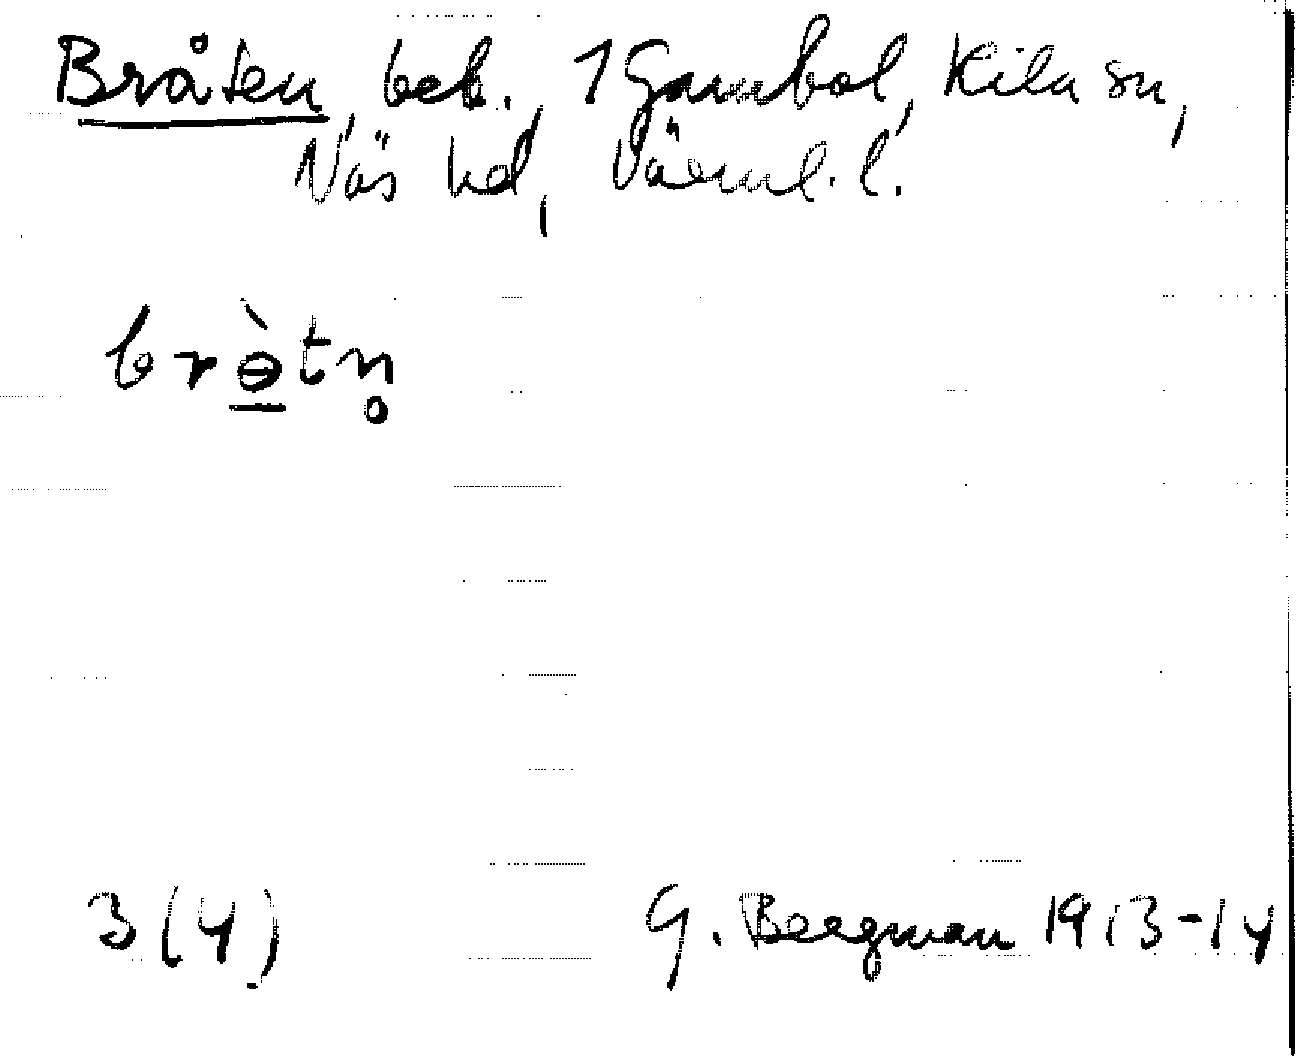 Bråten, beb., 1 Gambol, Kila sn,
Näs hd, Värml. l.
brɵ̲̀tn̥
3(4)
G. Bergman 1913-14